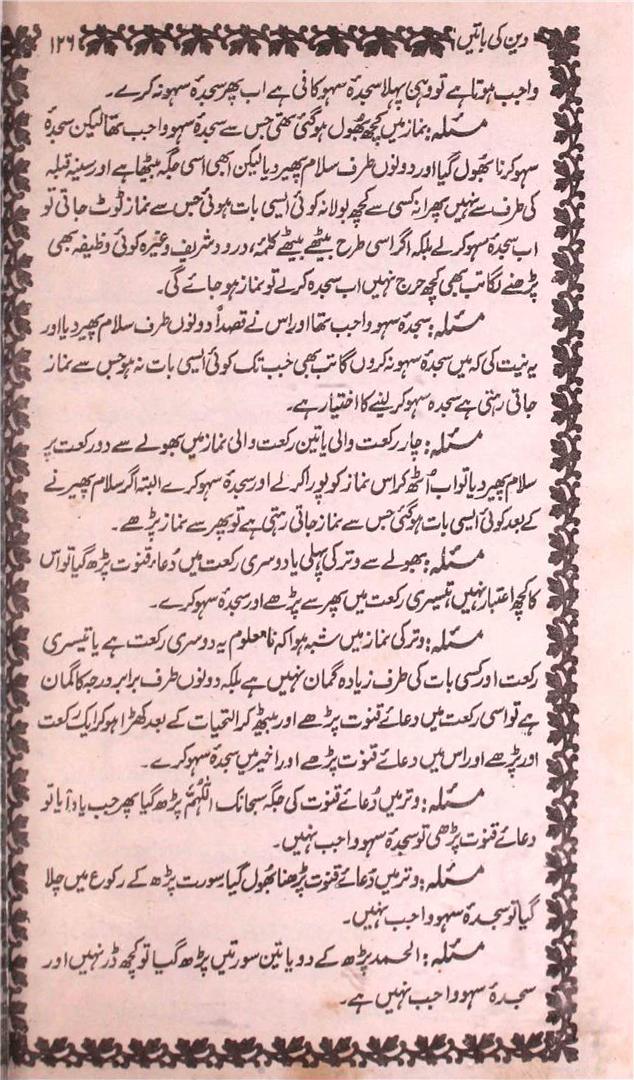 دین کی باتیں ۱۲۶
واجب ہوتا ہے تو وہی پہلا سجدۂ سہو کافی ہے اب پھر سجدۂ سہو نہ کرے۔
مسئلہ: نماز میں کچھ بھُول ہوگئی تھی جس سے سجدۂ سہو واجب تھا لیکن سجدۂ
سہو کرنا بھُول گیا اور دونوں طرف سلام پھیر دیا لیکن ابھی اسی جگہ بیٹھا ہے اور سینہ قبلہ
کی طرف سے نہیں پھرا نہ کسی سے کچھ بولا نہ کوئی ایسی بات ہوئی جس سے نماز ٹوٹ جاتی تو
اب سجدۂ سہو کرلے بلکہ اگر اسی طرح بیٹھے بیٹھے کلمہ، درود شریف وغیرہ کوئی وظیفہ بھی
پڑھنے لگا تب بھی کچھ حرج نہیں اب سجدہ کرلے تو نماز ہو جائے گی۔
مسئلہ: سجدۂ سہو واجب تھا اور اس نے قصداً دونوں طرف سلام پھیر دیا اور
یہ نیت کی کہ میں سجدۂ سہو نہ کروں گا تب بھی جب تک کوئی ایسی بات نہ ہو جس سے نماز
جاتی رہتی ہے سجدہ سہو کر لینے کا اختیار ہے۔
مسئلہ: چار رکعت والی یا تین رکعت والی نماز میں بھولے سے دو رکعت پر
سلام پھیر دیا تو اب اُٹھ کر اس نماز کو پورا کرلے اور سجدۂ سہو کرے البتہ اگر سلام پھیرنے
کے بعد کوئی ایسی بات ہوگئی جس سے نماز جاتی رہتی ہے تو پھر سے نماز پڑھے۔
مسئلہ: بھولے سے وتر کی پہلی یا دوسری رکعت میں دُعاء قنوت پڑھ گیا تو اس
کا کچھ اعتبار نہیں تیسری رکعت میں پھر سے پڑھے اور سجدۂ سہو کرے۔
مسئلہ: وتر کی نماز میں شبہ ہوا کہ نامعلوم یہ دوسری رکعت ہے یا تیسری
رکعت اور کسی بات کی طرف زیادہ گمان نہیں ہے بلکہ دونوں طرف برابر درجہ کا گمان
ہے تو اسی رکعت میں دعائے قنوت پڑھے اور بیٹھ کر التحیات کے بعد کھڑا ہو کر ایک رکعت
اور پڑھے اور اس میں دعائے قنوت پڑھے اور اخیر میں سجدۂ سہو کرے۔
مسئلہ: وتر میں دُعائے قنوت کی جگہ سبحانک اللّٰہُمَّ پڑھ گیا پھر جب یاد آیا تو
دعائے قنوت پڑھی تو سجدۂ سہو واجب نہیں۔
مسئلہ: وتر میں دُعائے قنوت پڑھنا بھُول گیا سورت پڑھ کے رکوع میں چلا
گیا تو سجدۂ سہو واجب نہیں۔
مسئلہ: الحمد پڑھ کے دو یا تین سورتیں پڑھ گیا تو کچھ ڈر نہیں اور
سجدۂ سہو واجب نہیں ہے۔